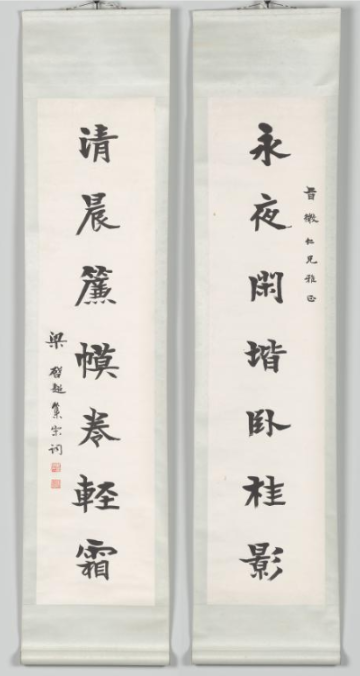 永夜閑堦臥桂影
仁兄雅正
清晨簾幙卷輕霜
梁啓超集宋詞